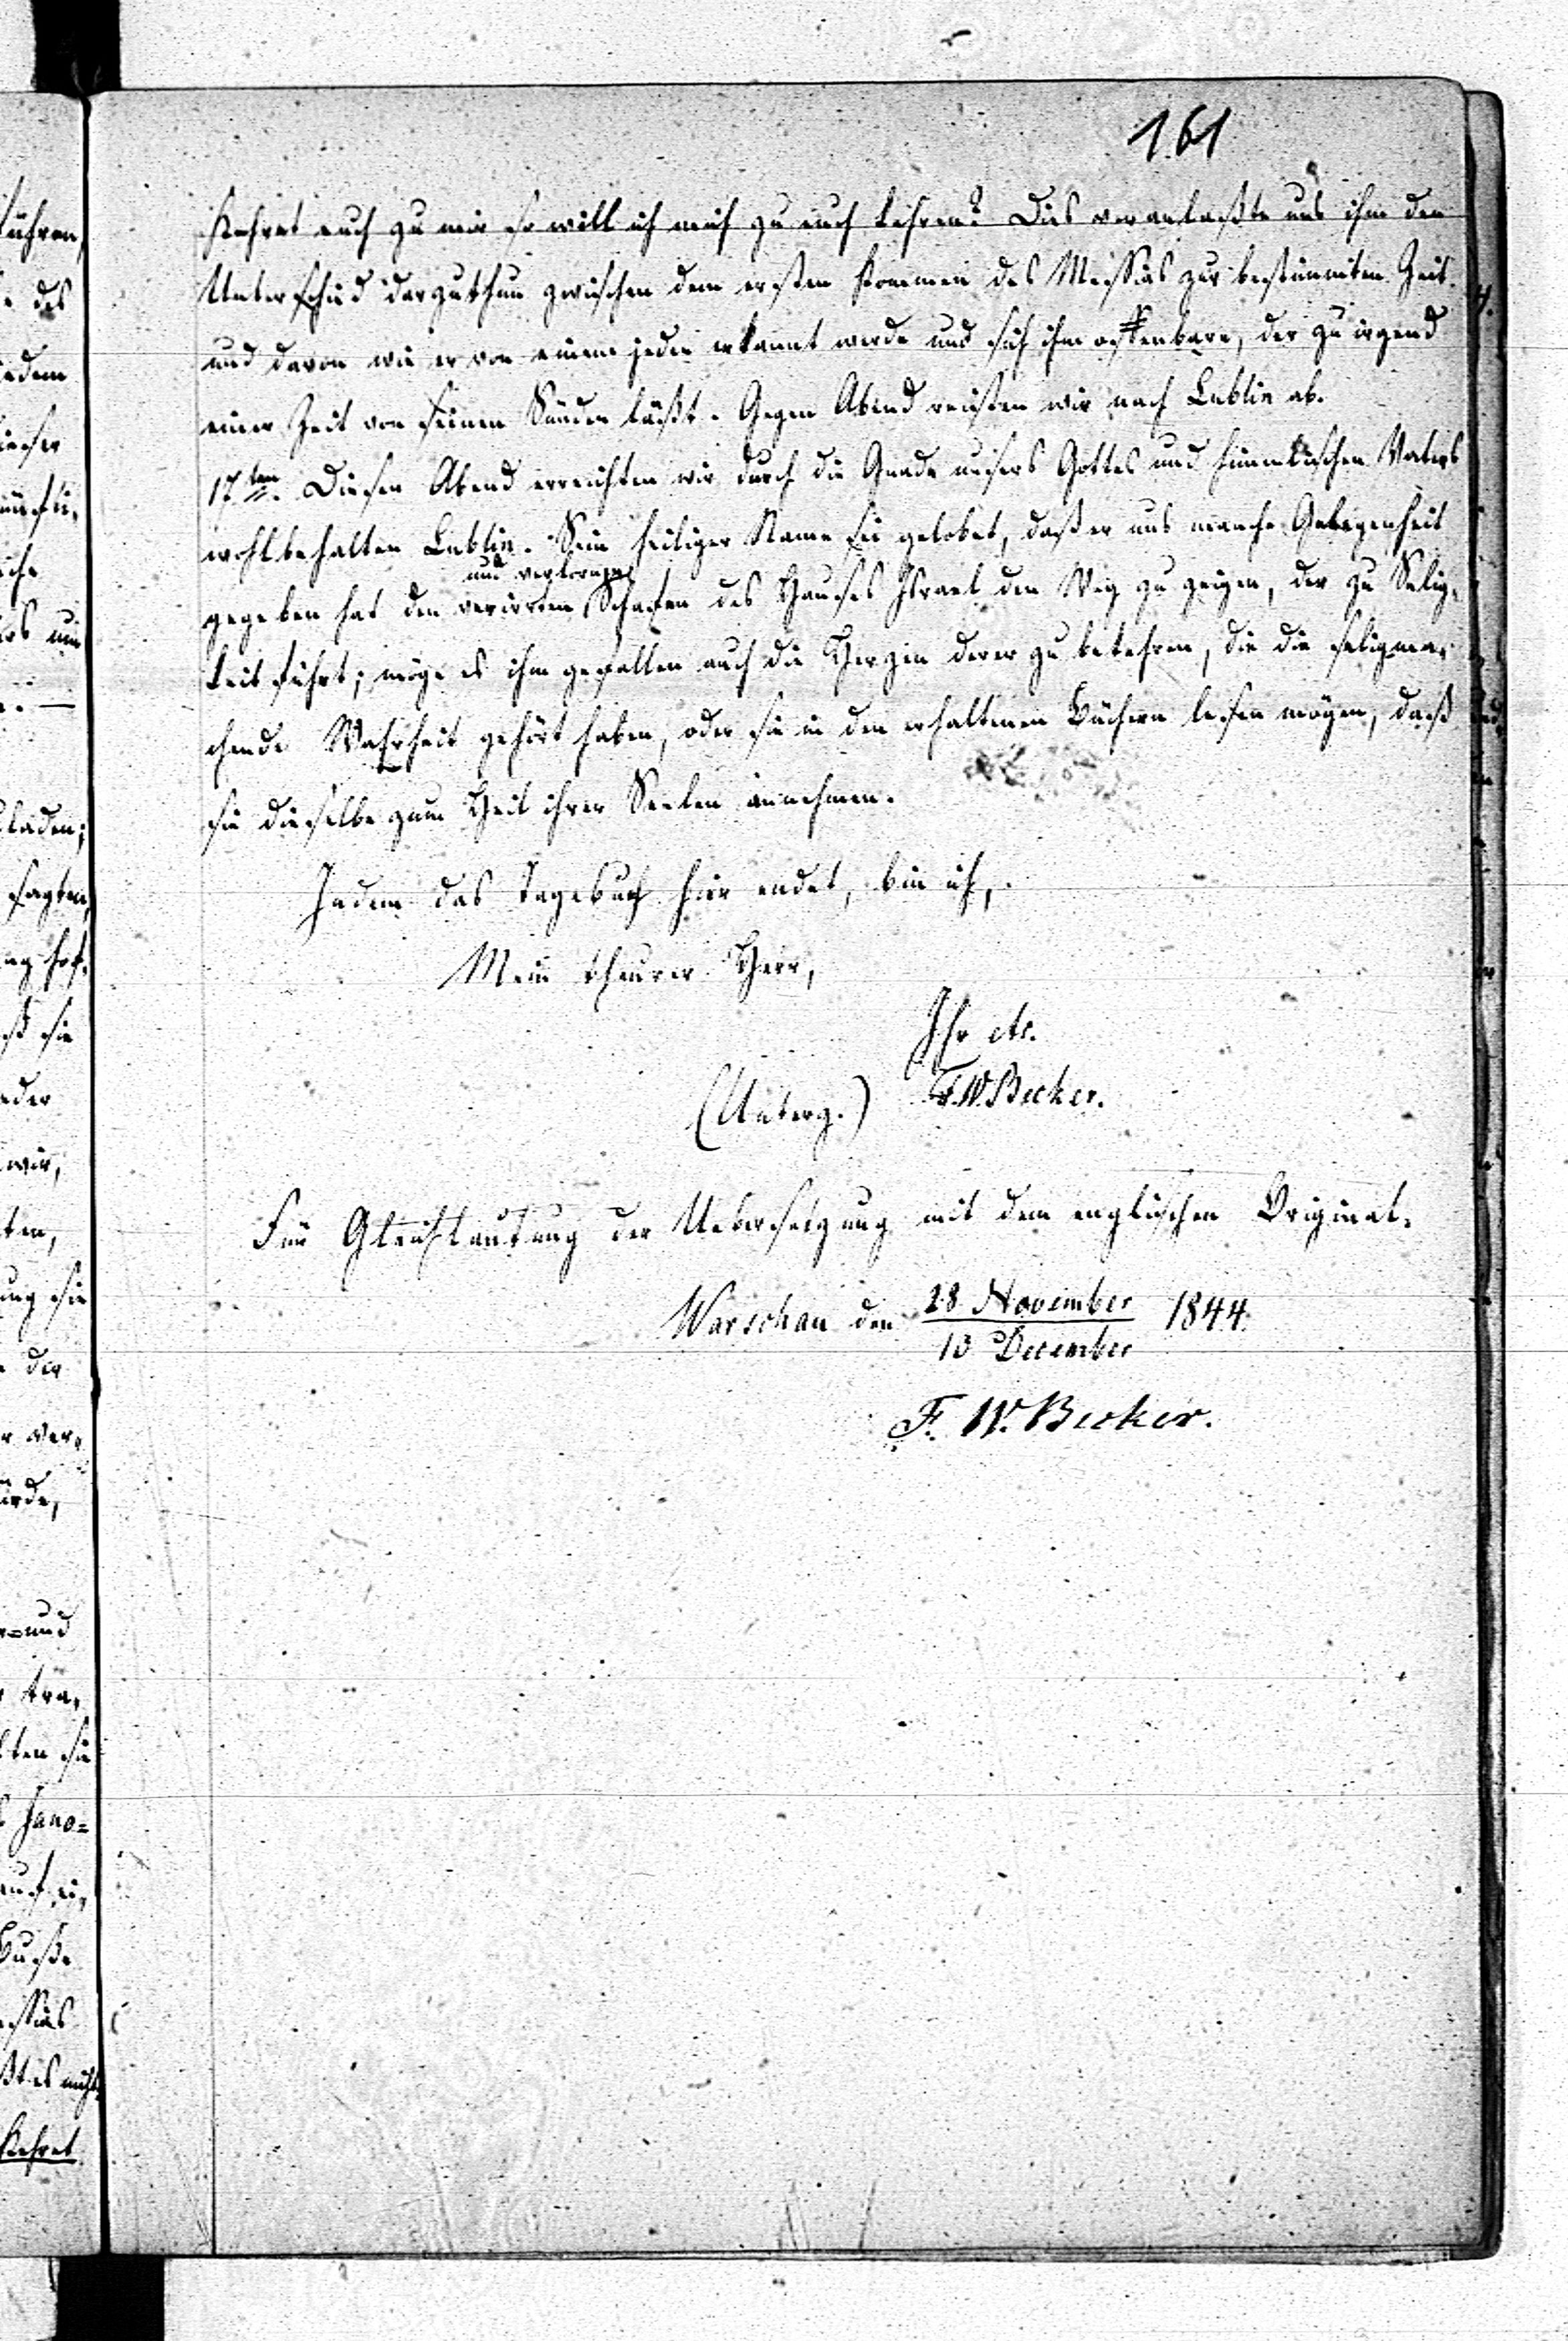 161
Kehret euch zu mir so will ich mich zu euch kehren? Dies veranlaßte uns ihm den
Unterschied darzuthun zwischen dem ersten Kommen des Messias zur bestimmten Zeit
und davon wie er von einem jeden erkannt werde und sich ihm offenbare, der zu irgend
einer Zeit von seinen Sünden läßt. Gegen Abend reisten wir nach Lublin ab.
17ten. Diesen Abend erreichten wir durch die Gnade unsers Gottes und himmlischen Vaters
wohlbehalten Lublin. Sein heiliger Name sei gelobet, daß er uns manche Gelegenheit
und verlornen
gegeben hat den verirrten Schafen des Hauses Israel den Weg zu zeigen, der zu Selig-
keit führt; möge es ihm gefallen auch die Herzen derer zu bekehren, die die seligma-
chende Wahrheit gehört haben, oder sie in den erhaltenen Büchern lesen mögen, daß
sie dieselbe zum Heil ihrer Seelen annehmen.
Indem das Tagebuch hier endet, bin ich,
Mein theurer Herr,
Ihr etc.
(Unterz.) F. W. Becker.
Für Gleichlautung der Uebersetzung mit dem englischen Original.
Warschau den 28 November 1844.
10 December
F. W. Becker.